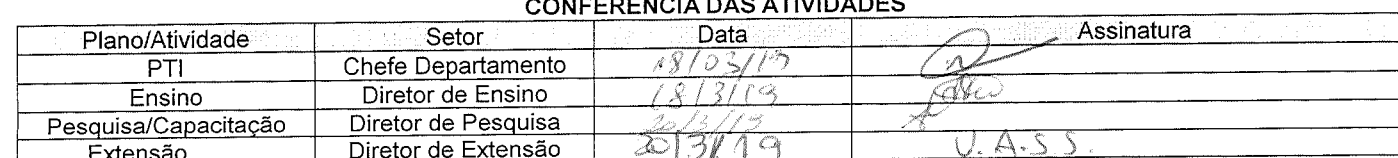 CONFERÊNCIA DAS ATIVIDADES
Plano/Atividade Setor Data Assinatura
PTI Chefe Departamento 18/03/19
Ensino Diretor de Ensino 18/3/19
Pesquisa/Capacitação Diretor de Pesquisa 20/3/19
Extensão Diretor de Extensão 20/3/19 U.A.S.S.